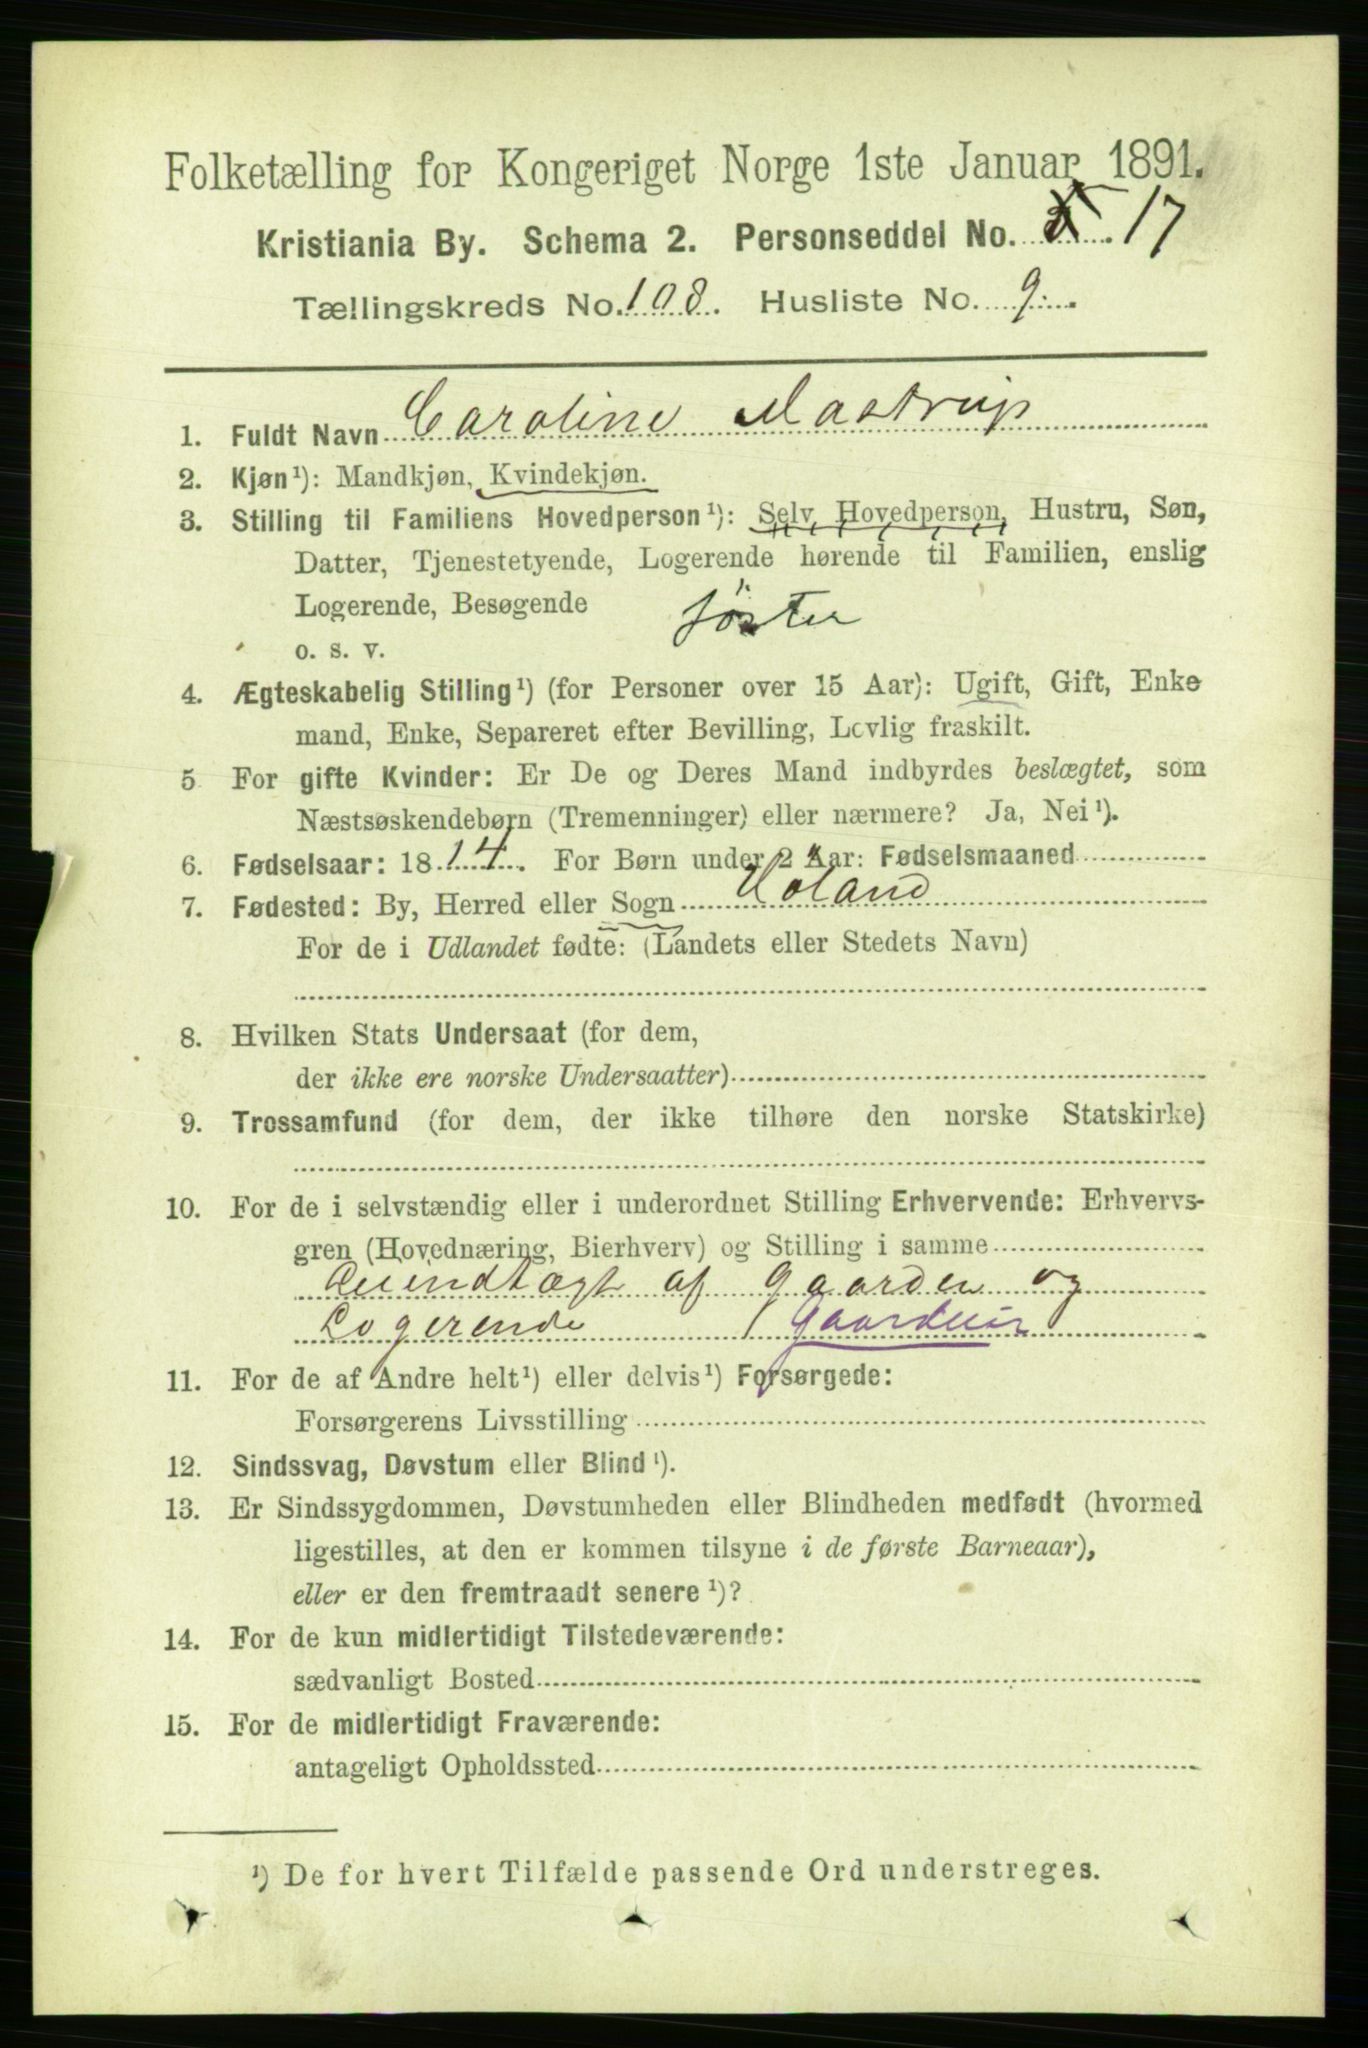 Folketælling for Kongeriget Norge 1ste Januar 1891.
Kristiania By. Schema 2. Personseddel No. 17
Tællingskreds No. 108. Husliste No. 9.
1. Fuldt Navn Caroline Mastrup
2. Kjøn¹): Mandkjøn, Kvindekjøn.
3. Stilling til Familiens Hovedperson¹): Selv Hovedperson, Hustru, Søn,
Datter, Tjenestetyende, Logerende hørende til Familien, enslig
Logerende, Besøgende söster
o. s. v.
4. Ægteskabelig Stilling¹) (for Personer over 15 Aar): Ugift, Gift, Enke
mand, Enke, Separeret efter Bevilling, Lovlig fraskilt.
5 For gifte Kvinder: Er De og Deres Mand indbyrdes beslægtet, som
Næstsøskendebørn (Tremenninger) eller nærmere? Ja, Nei¹).
6. Fødselsaar: 1814. For Børn under 2 Aar: Fødselsmaaned
7. Fødested: By, Herred eller Sogn Höland
For de i Udlandet fødte: (Landets eller Stedets Navn)
8. Hvilken Stats Undersaat (for dem,
der ikke ere norske Undersaatter)
9. Trossamfund (for dem, der ikke tilhøre den norske Statskirke)
10. For de i selvstændig eller i underordnet Stilling Erhvervende: Erhvervs-
gren (Hovednæring, Bierhverv) og Stilling i samme
indtægt af Gaarden og
Logerende Gaardeier
11. For de af Andre helt¹) eller delvis¹) Forsørgede:
Forsørgerens Livsstilling
12. Sindssvag, Døvstum eller Blind¹).
13. Er Sindssygdommen, Døvstumheden eller Blindheden medfødt (hvormed
ligestilles, at den er kommen tilsyne i de første Barneaar),
eller er den fremtraadt senere¹)?
14. For de kun midlertidigt Tilstedeværende:
sædvanligt Bosted
15. For de midlertidigt Fraværende:
antageligt Opholdssted
¹) De for hvert Tilfælde passende Ord understreges.